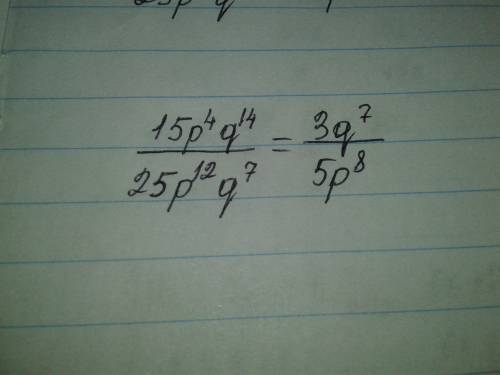 15p⁴q¹⁴/25p¹²q⁷ = 3q⁷/5p⁸